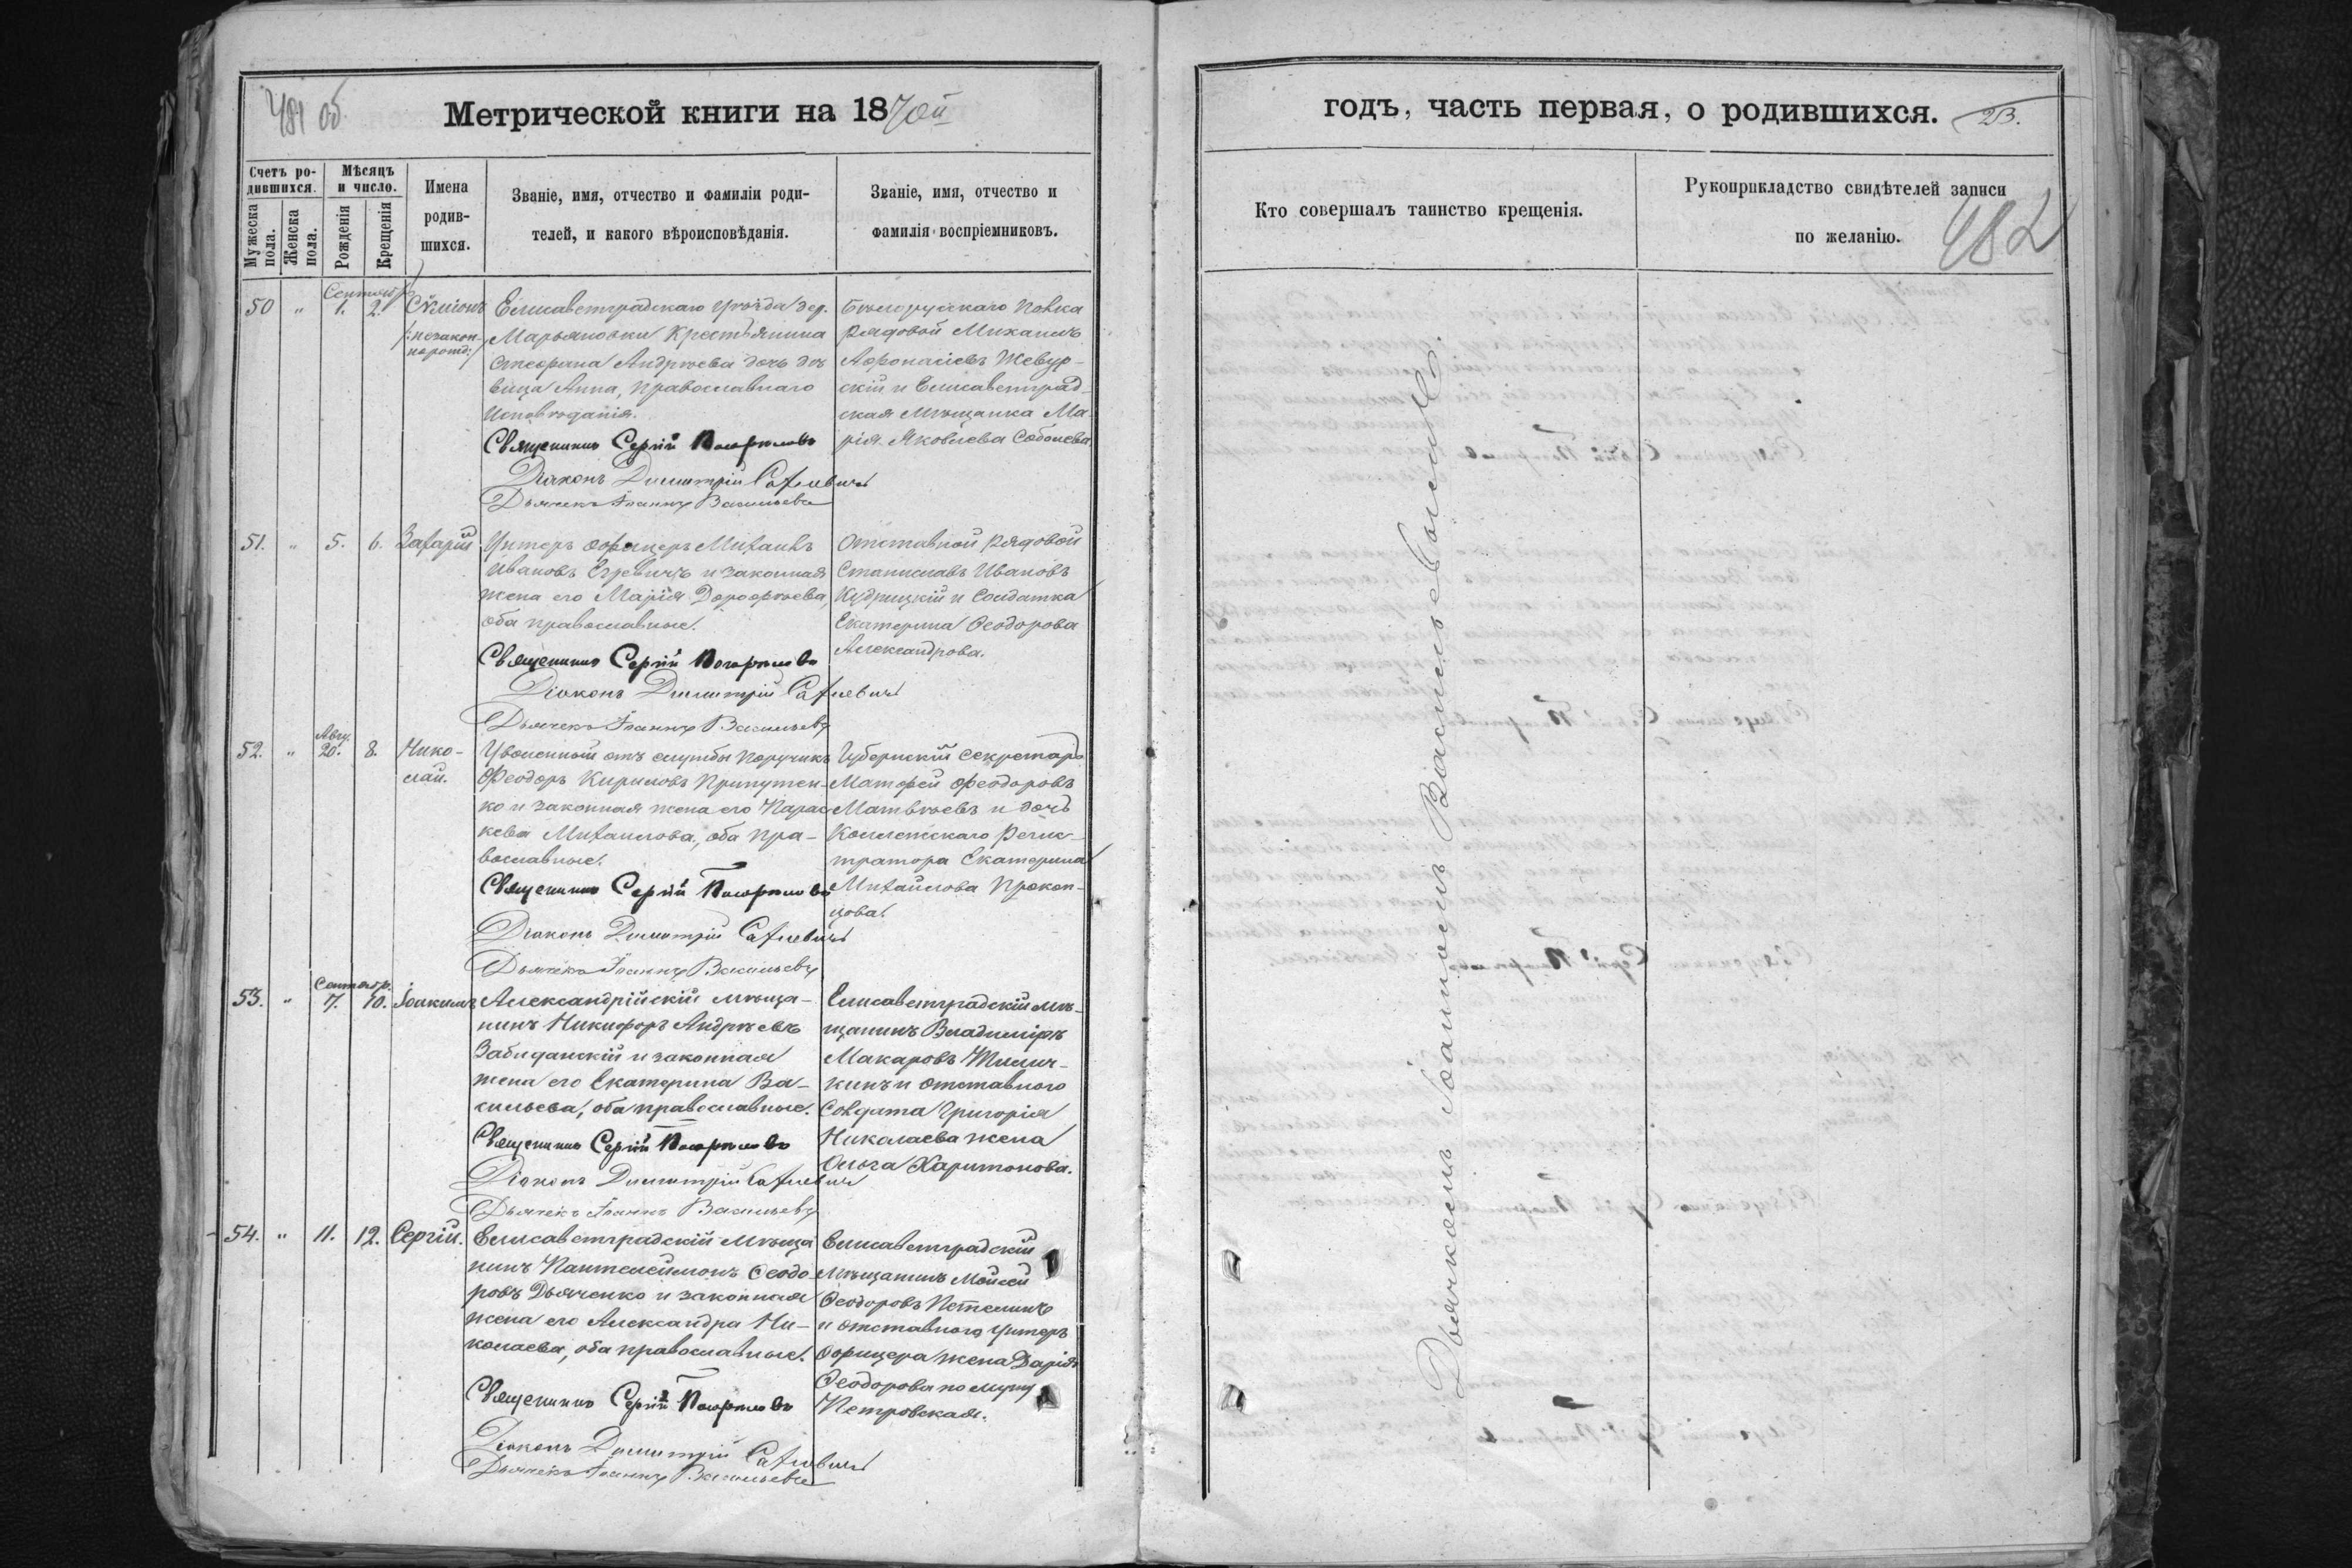 481 об
Метрической книги на 1870й
Счетъ родившихся.
Мѣсяцъ и число.
Мужеска пола.
Женска пола.
Рожденія
Крещенія
Имена родившихся.
Званіе, имя, отчество и фамиліи роди-
телей, и какого вѣроисповѣданія.
Званіе, имя, отчество и
фамилія воспріемниковъ.
50 " 1. 2.
незакон-
Елисаветградскаго Уѣзда дер.
Марьяновки Крестьянина
Стефана Андрѣева дочь дѣ
вица Анна, Православнаго
Исповѣданія.
Священникъ Сергій
Діаконъ Димитрій
Дьячекъ Іоаннъ Васильевъ
Бѣлорусскаго Полка
рядовой Михаилъ
скій и Елисаветград-
ская Мѣщанка Ма-
рія Яковлева Соболева
51. " 5. 6. Захарій
Унтеръ Офицеръ Михаилъ
Ивановъ и законная
жена его Марія Дорофѣева,
оба православные.
Священникъ Сергій
Діаконъ Димитрій
Дьячекъ Іоаннъ Васильевъ
Отставной рядовой
Станиславъ Ивановъ
Кудрицкій и Солдатка
Екатерина Ѳеодорова
Александрова.
Авгу.
52. " 20. 8. Нико-
лай.
Уволенный отъ службы Поручикъ
Ѳеодоръ Кириловъ Припутен-
ко и законная жена его Парас
кева Михаилова, оба пра-
вославные.
Священникъ Сергій
Діаконъ Димитрій
Дьячекъ Іоаннъ Васильевъ
Губернскій Секретарь
Матфей Ѳеодоровъ
Матвѣевъ и дочь
Коллежскаго Регис-
тратора Екатерина
Михайлова Прокоп-
цова.
Сентябр.
53. " 7. 10. Іоакимъ
Александрійскій мѣща-
нинъ Никифоръ Андрѣевъ
и законная
жена его Екатерина Ва-
сильева, оба православные.
Священникъ Сергій
Діаконъ Димитрій
Дьячекъ Іоаннъ Васильевъ
Елисаветградскій мѣ-
щанинъ Владиміръ
Макаровъ
кинъ и отставного
Солдата Григорія
Николаева жена
Ольга Харитонова.
54. " 11. 12. Сергій.
Елисаветградскій мѣща
нинъ Пантелеймонъ Ѳеодо
ровъ Дьяченко и законная
жена его Александра Ни-
колаева, оба православные.
Священникъ Сергій
Діаконъ Димитрій
Дьячекъ Іоаннъ Васильевъ
Елисаветградскій
Мѣщанинъ Мойсей
Ѳеодоровъ
и отставного Унтеръ
Офицера жена Дарія
Ѳеодорова по мужу
Петровская.
годъ, часть первая, о родившихся.
23.
Кто совершалъ таинство крещенія.
Рукоприкладство свидѣтелей записи
по желанію.
482
Дьячкомъ Іоанномъ Васильевымъ.